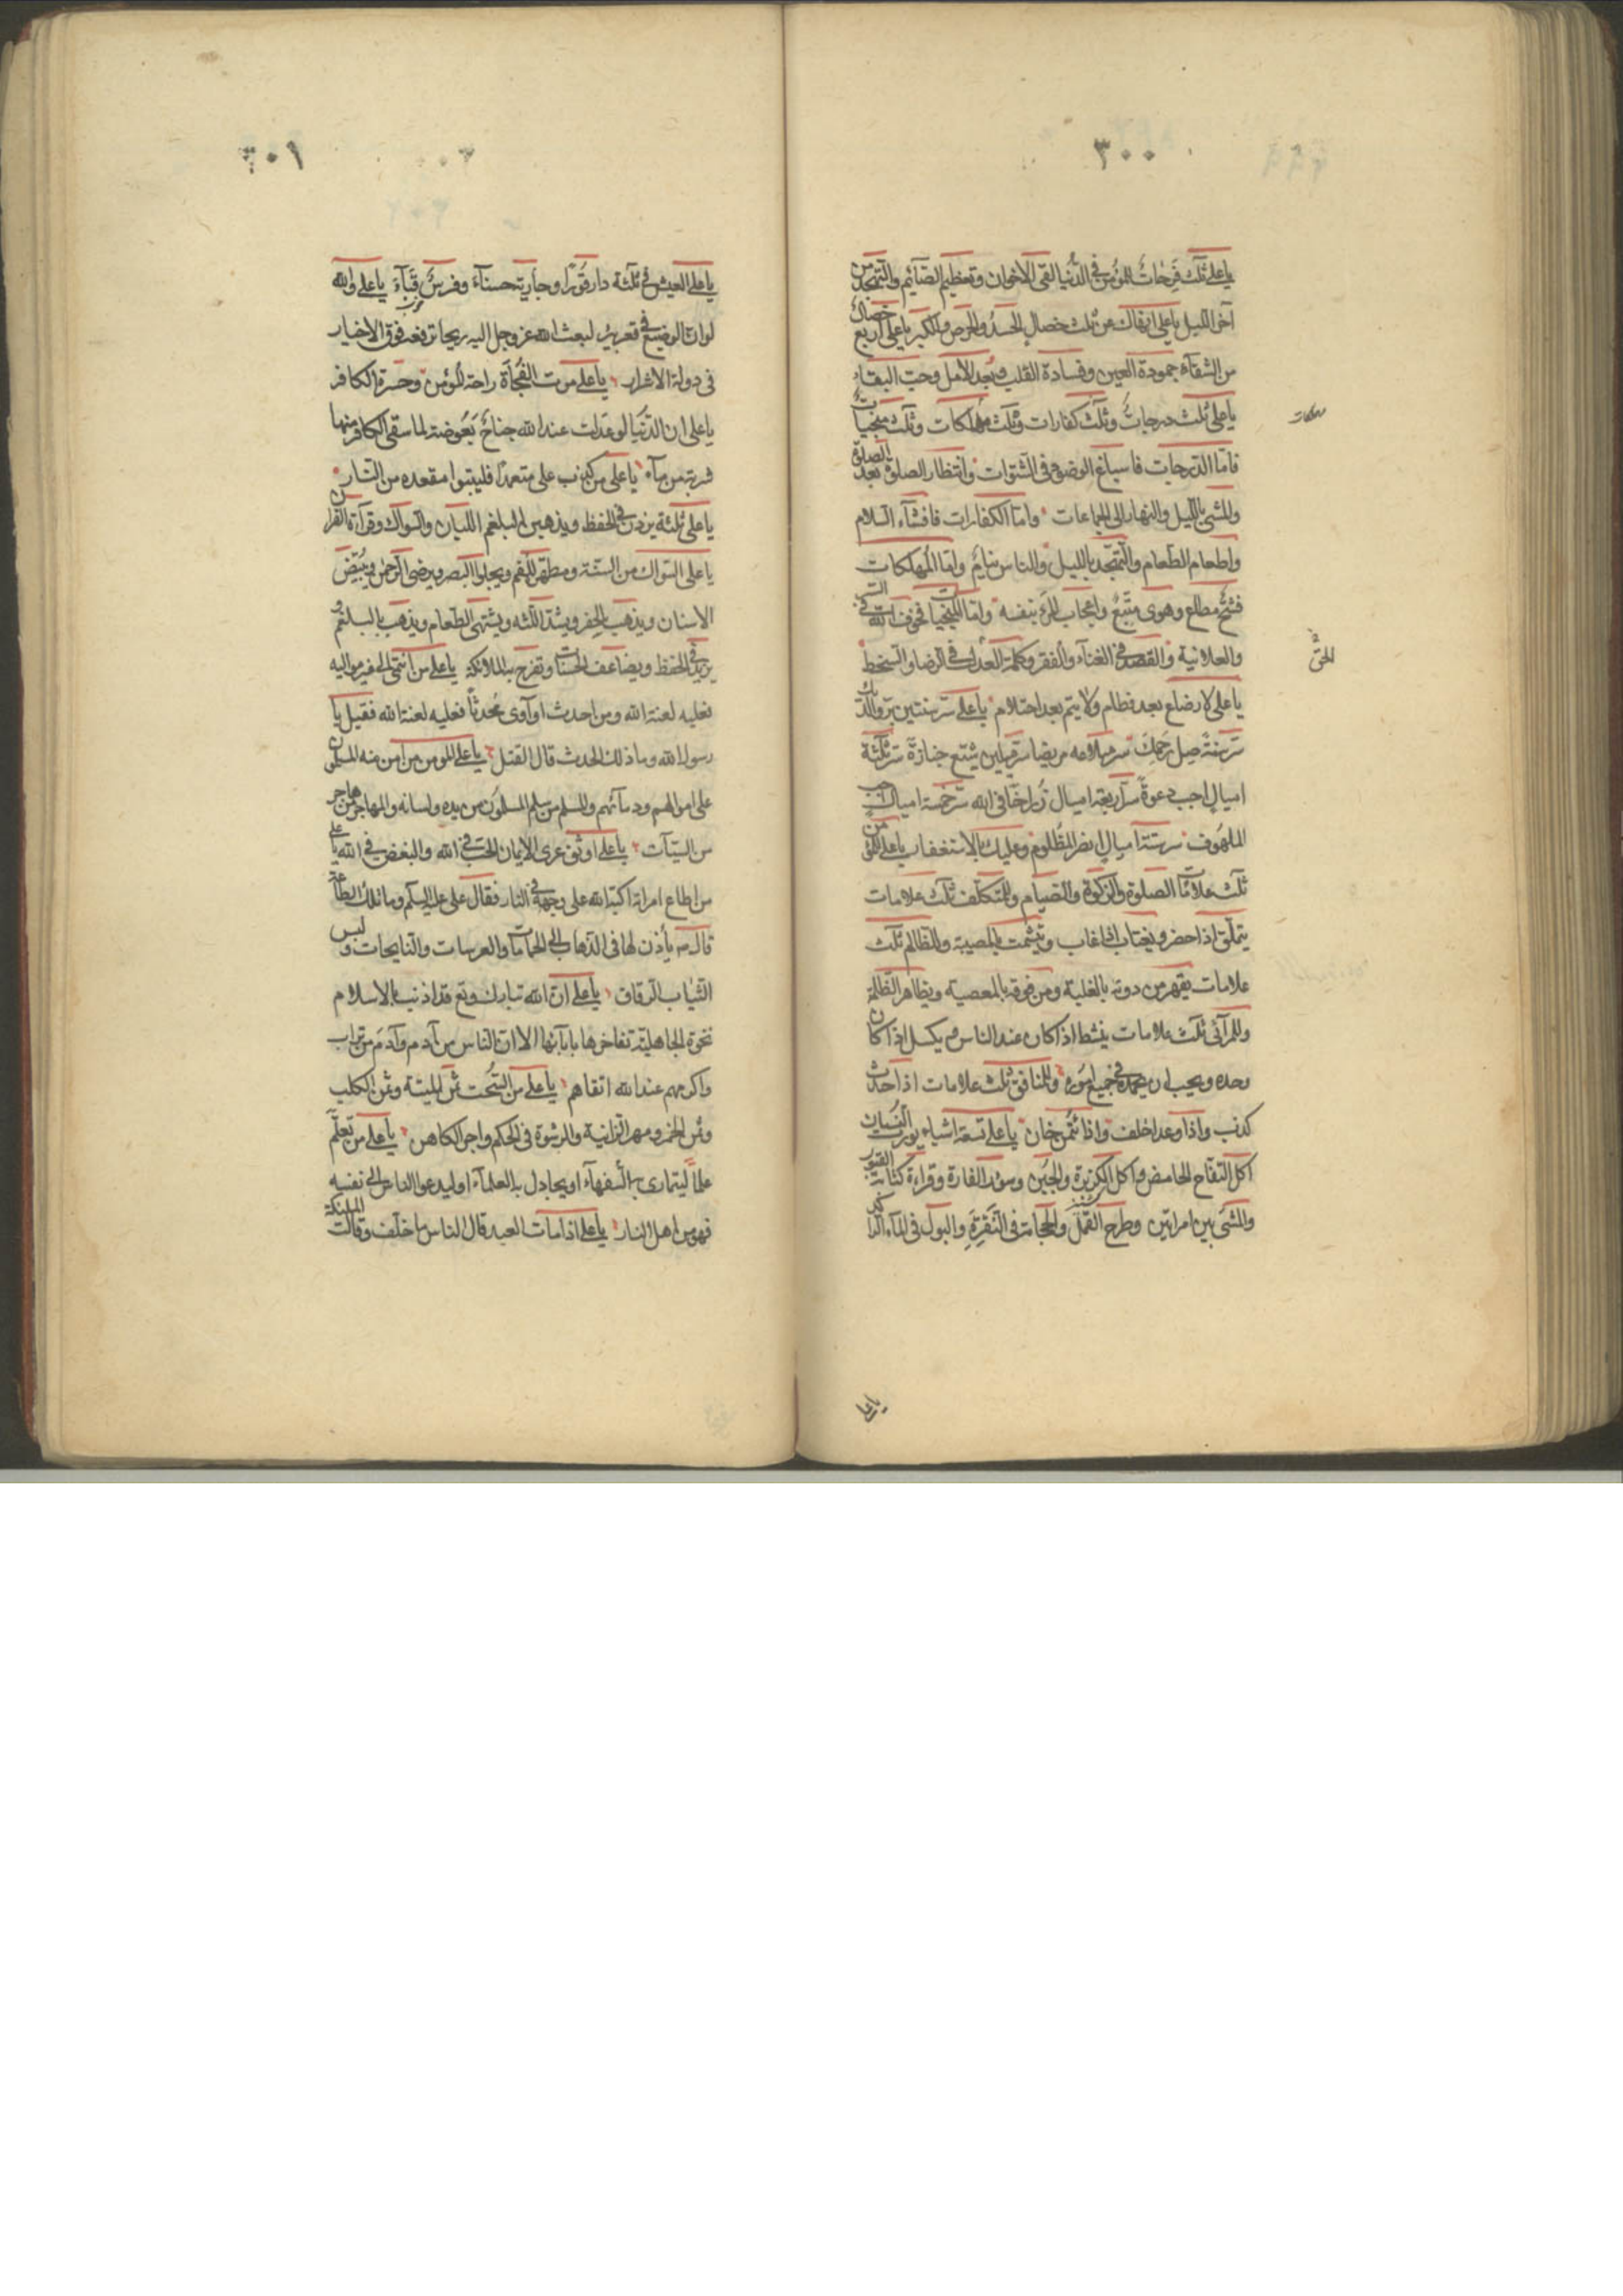 ٣٠٠
يا علي ثلث فرحات للمؤمن في الدنيا لقى الاخوان وتعظيم الصآئم والتهجد من
آخر الليل يا علي انهاك عن ثلث خصال الحسد والحرص والكبر يا علي اربع خصال
من الشقآء جمودة العين وقساوة القلب وبُعد الامل وحب البقاء
يا علي ثلث درجات وثلث كفارات وثلث مهلكات وثلث منجيات
فاما الدرجات فاسباغ الوضوء في الشتوات وانتظار الصلوة بعد الصلوة
والمشي بالليل والنهار الى الجماعات واما الكفارات فافشآء السلام
واطعام الطعام والتهجد بالليل والناس نيام واما المهلكات
فشح مطاع وهوى متبع واعجاب المرء بنفسه واما المنجيات فخوف الله في السر
والعلانية والقصد في الغنآء والفقر وكلمة العدل في الرضا والسخط
الحق
يا علي لا رضاع بعد فطام ولا يتم بعد احتلام يا علي سر سنتين بر والديك
سر سنة صل رحمك سر ميلا عد مريضا سر ميلين شيع جنازة سر ثلثة
اميال اجب دعوة سر اربعة اميال زر اخا في الله سر خمسة اميال اجب
الملهوف سر ستة اميال انصر المظلوم وعليك بالاستغفار يا علي للمؤمن
ثلث علامات الصلوة والزكوة والصيام وللمتكلف ثلث علامات
يتملق اذا حضر ويغتاب اذا غاب ويشمت بالمصيبة وللظالم ثلث
علامات يقهر من دونه بالغلبة ومن فوقه بالمعصية ويظاهر الظلمة
وللمرآئي ثلث علامات ينشط اذا كان عند الناس ويكسل اذا كان
وحده ويحب ان يحمد في جميع اموره وللمنافق ثلث علامات اذا حدث
كذب واذا وعد اخلف واذا ائتمن خان يا علي تسعة اشياء يورث النسيان
اكل التفاح الحامض واكل الكزبرة والجبن وسؤر الفارة وقراءة كتابة القبور
والمشي بين امراتين وطرح القملة والحجامة في النقرة والبول في المآء الراكد
٣٠١
يا علي العيش في ثلثة دار قورا وجارية حسنآء وفرس قبآء يا علي والله
لو ان الوضيع في قعر بئر لبعث الله عز وجل اليه ريحا ترفعه فوق الاخيار
في دولة الاشرار يا علي موت الفجأة راحة للمؤمن وحسرة الكافر
يا علي ان الدنيا لو عدلت عند الله جناح بعوضة لما سقى الكافر منها
شربة من مآء يا علي من كذب علي متعمدا فليتبوا مقعده من النار
يا علي ثلثة يزدن في الحفظ ويذهبن البلغم اللبان والسواك وقرآءة القرآن
يا علي السواك من السنة ومطهر للفم ويجلوا البصر ويرضي الرحمن ويبيض
الاسنان ويذهب بالحفر ويشد اللثه ويشهي الطعام ويذهب بالبلغم و
يزيد في الحفظ ويضاعف الحسنات وتفرح به الملائكة يا علي من انتمى الى غير مواليه
فعليه لعنة الله ومن احدث او آوى محدثا فعليه لعنة الله فقيل يا
رسول الله وما ذلك الحدث قال القتل يا علي المومن من امن منه المسلمون
على اموالهم ودمآئهم والمسلم من سلم المسلمون من يده ولسانه والمهاجر من هاجر
من السيآت يا علي اوثق عرى الايمان الحب في الله والبغض في الله يا علي
من اطاع امراة اكبه الله على وجهه في النار فقال علي عليه السلم وما تلك الطاعة
قال ص يأذن لها في الذهاب الى الحمامات والعرسات والنايحات ولبس
الثياب الرقاق يا علي ان الله تبارك وتع قد اذهب بالاسلام
نخوة الجاهلية تفاخرها بابآئها الا ان الناس من آدم وآدم من تراب
واكرمهم عند الله اتقاهم يا علي من السحت ثمن الميتة وثمن الكلب
وثمن الخمر ومهر الزانية والرشوة في الحكم واجر الكاهن يا علي من تعلم
علما ليتمارى به السفهآء او يجادل به العلمآء او ليدعوا الناس الى نفسه
فهو من اهل النار يا علي اذا مات العبد قال الناس ما خلف وقالت الملئكة